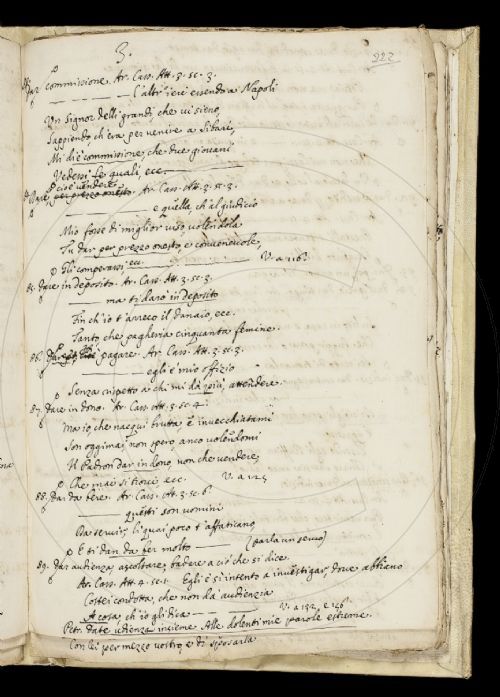 3.
222
83. Dar commissione. Ar. Cass. Att. 3. sc. 3.
L'altr'ieri essendo a Napoli
Un signor delli grandi, che vi sieno,
Sappiendo, ch'era per venire a Sibari,
Mi diè commissione, che due giovani
Vedessi fe quali, ecc.
cioè vendere
84. Dare, per prezzo onesto. Ar. Cass. Att. 3. sc. 3.
e quella, ch'al giudicio
Mio fosse di miglior viso, volendola
Tu dar per prezzo onesto, e convenevole,
Gli comperassi ecc. V. a 116.
85. Dare in deposito. Ar. Cass. Att. 3. sc. 3.
ma ti darò in deposito
Fin ch'io t'arreco il danaio, ecc.
Tanto che pagheria cinquanta femine.
86. pagare. Ar. Cass. Att. 3. sc. 3.
egli è mio offizio
Senza rispetto a chi mi dà più, attendere.
87. Dare in dono. Ar. Cass. Att. 3. sc. 4.
Ma io, che nacqui brutta, e invecchiatami
Son oggimai, non spero, anco volendomi
Il Padron dar in dono, non che vendere,
Che mai si trovi ecc. V. a 125
88. Dar da bere. Ar. Cass. Att. 3. sc. 6.
questi son uomini
Da servir, li quai poco t'affaticano,
E ti dan da ber molto (parla un servo)
89. Dar audienza ascoltare, badare a ciò che si dice.
Ar. Cass. Att. 4. sc. 1. Egli è sì intento a investigar, dove abbiano
Costei condotta, che non dà audienzia
A cosa, ch'io gli dica V. a 132, e 136
Petr. date udienza insieme Alle dolenti mie parole estreme.
Con lei per mezzo vostro, e di sposarla